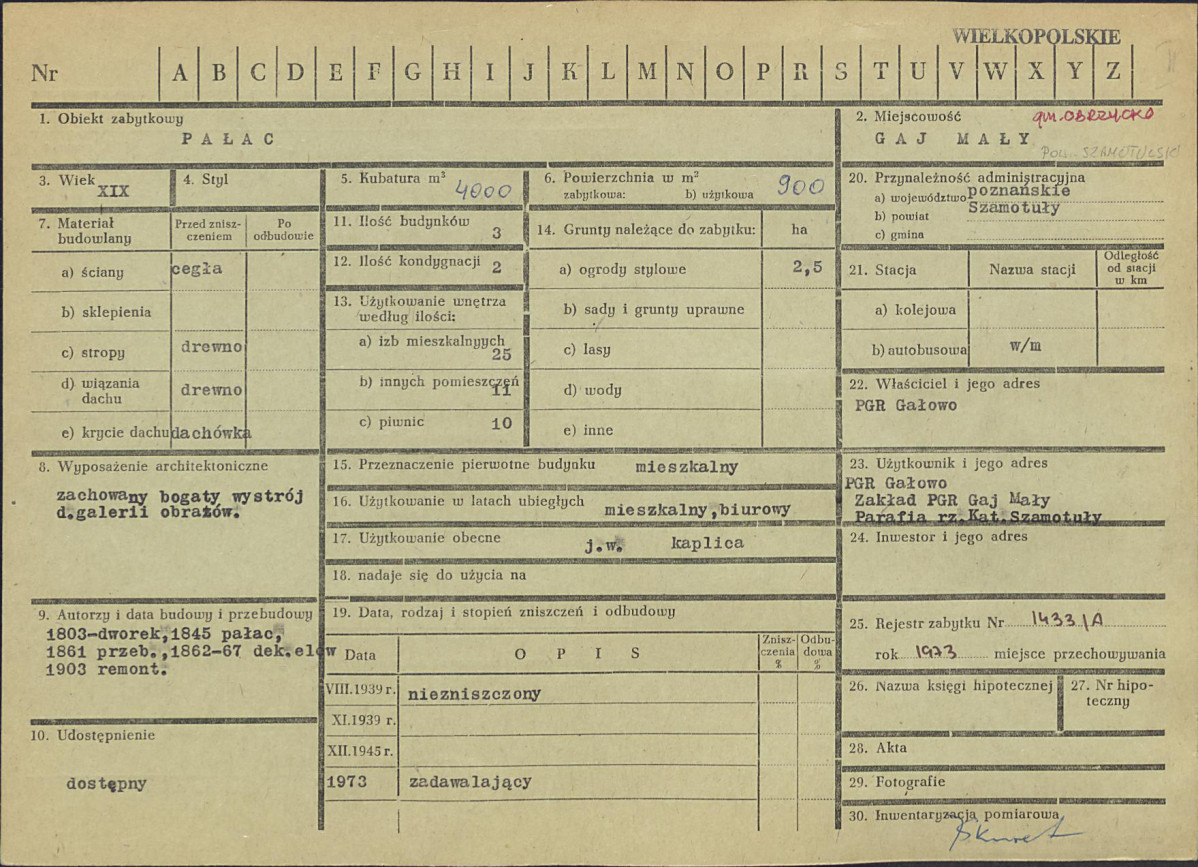 WIELKOPOLSKIE
Nr A B C D E F G H I J K L M N O P R S T U V W X Y Z
1. Obiekt zabytkowy
PAŁAC
2. Miejscowość gm. OBRZYCKO
GAJ MAŁY
Pow. SZAMOTULSKI
3. Wiek
XIX
4. Styl
5. Kubatura m³ 4000
6. Powierzchnia w m² 900
zabytkowa: b) użytkowa
20. Przynależność administracyjna
a) województwo poznańskie
b) powiat Szamotuły
c) gmina
7. Materiał budowlany
Przed zniszczeniem
Po odbudowie
a) ściany cegła
b) sklepienia
c) stropy drewno
d) wiązania dachu drewno
e) krycie dachu dachówka
11. Ilość budynków 3
12. Ilość kondygnacji 2
13. Użytkowanie wnętrza
według ilości:
a) izb mieszkalnyych 25
b) innych pomieszczeń 11
c) piwnic 10
14. Grunty należące do zabytku: ha
a) ogrody stylowe 2,5
b) sady i grunty uprawne
c) lasy
d) wody
e) inne
21. Stacja
Nazwa stacji
Odległość od stacji w km
a) kolejowa
b) autobusowa w/m
22. Właściciel i jego adres
PGR Gałowo
8. Wyposażenie architektoniczne
zachowany bogaty wystrój
d.galerii obrazów.
15. Przeznaczenie pierwotne budynku mieszkalny
16. Użytkowanie w latach ubiegłych mieszkalny,biurowy
17. Użytkowanie obecne j.w. kaplica
18. nadaje się do użycia na
23. Użytkownik i jego adres
PGR Gałowo
Zakład PGR Gaj Mały
Parafia rz.Kat.Szamotuły
24. Inwestor i jego adres
9. Autorzy i data budowy i przebudowy
1803-dworek,1845 pałac,
1861 przeb.,1862-67 dek.elew
1903 remont.
10. Udostępnienie
dostępny
19. Data, rodzaj i stopień zniszczeń i odbudowy
Data
OPIS
Zniszczenia %
Odbudowa %
VIII.1939 r. niezniszczony
XI.1939 r.
XII.1945 r.
1973 zadawalający
25. Rejestr zabytku Nr 1433/A
rok 1973 miejsce przechowywania
26. Nazwa księgi hipotecznej
27. Nr hipoteczny
28. Akta
29. Fotografie
30. Inwentaryzacja pomiarowa